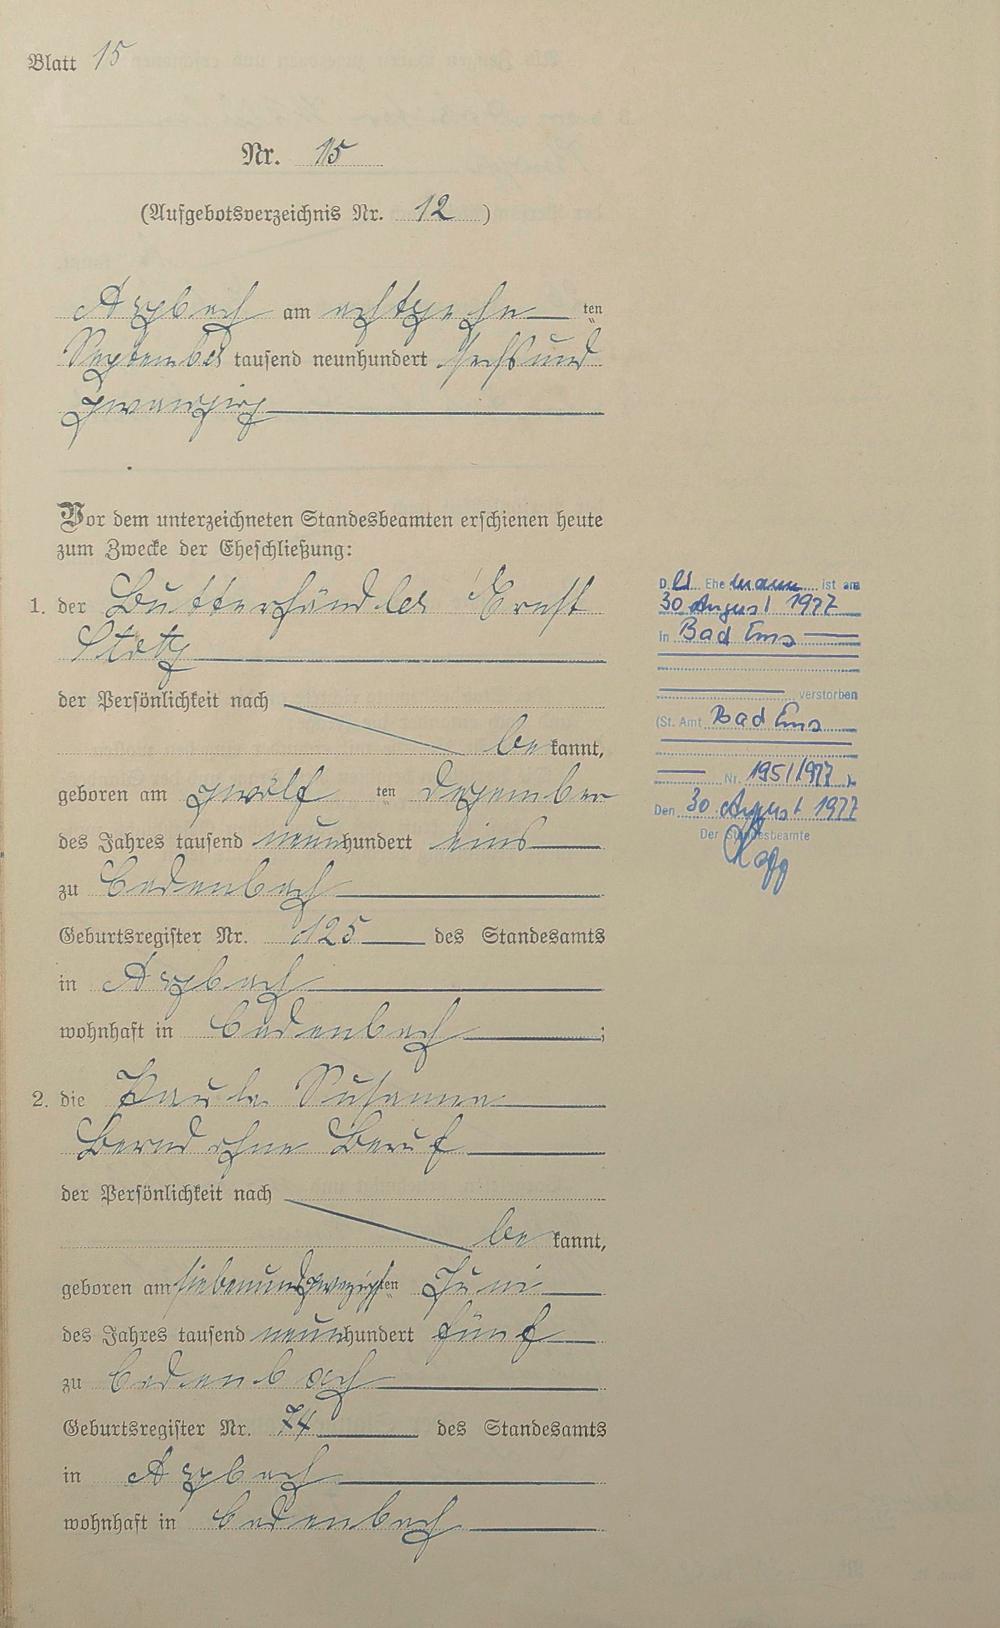 Blatt 15
Nr. 15
(Aufgebotsverzeichnis Nr. 12)
Arzbach am achtzehn ten
September tausend neunhundert sechsund
zwanzig
Vor dem unterzeichneten Standesbeamten erschienen heute
zum Zwecke der Eheschließung:
1. der Butterhändler Ernst
Stotz
der Persönlichkeit nach
be kannt,
geboren am zwölf ten Dezember
des Jahres tausend neunhundert eins
zu Cadenbach
Geburtsregister Nr. 125 des Standesamts
in Arzbach
wohnhaft in Cadenbach ;
2. die Paula Susanna
Bernd ohne Beruf
der Persönlichkeit nach
be kannt,
geboren am siebenundzwanzigsten Juni
des Jahres tausend neunhundert fünf
zu Cadenbach
Geburtsregister Nr. 74 des Standesamts
in Arzbach
wohnhaft in Cadenbach
Der Ehemann ist am
30 August 1977
in Bad Ems
verstorben
(St. Amt Bad Ems
Nr. 195/1977 )
Den 30. August 1977
Der Standesbeamte